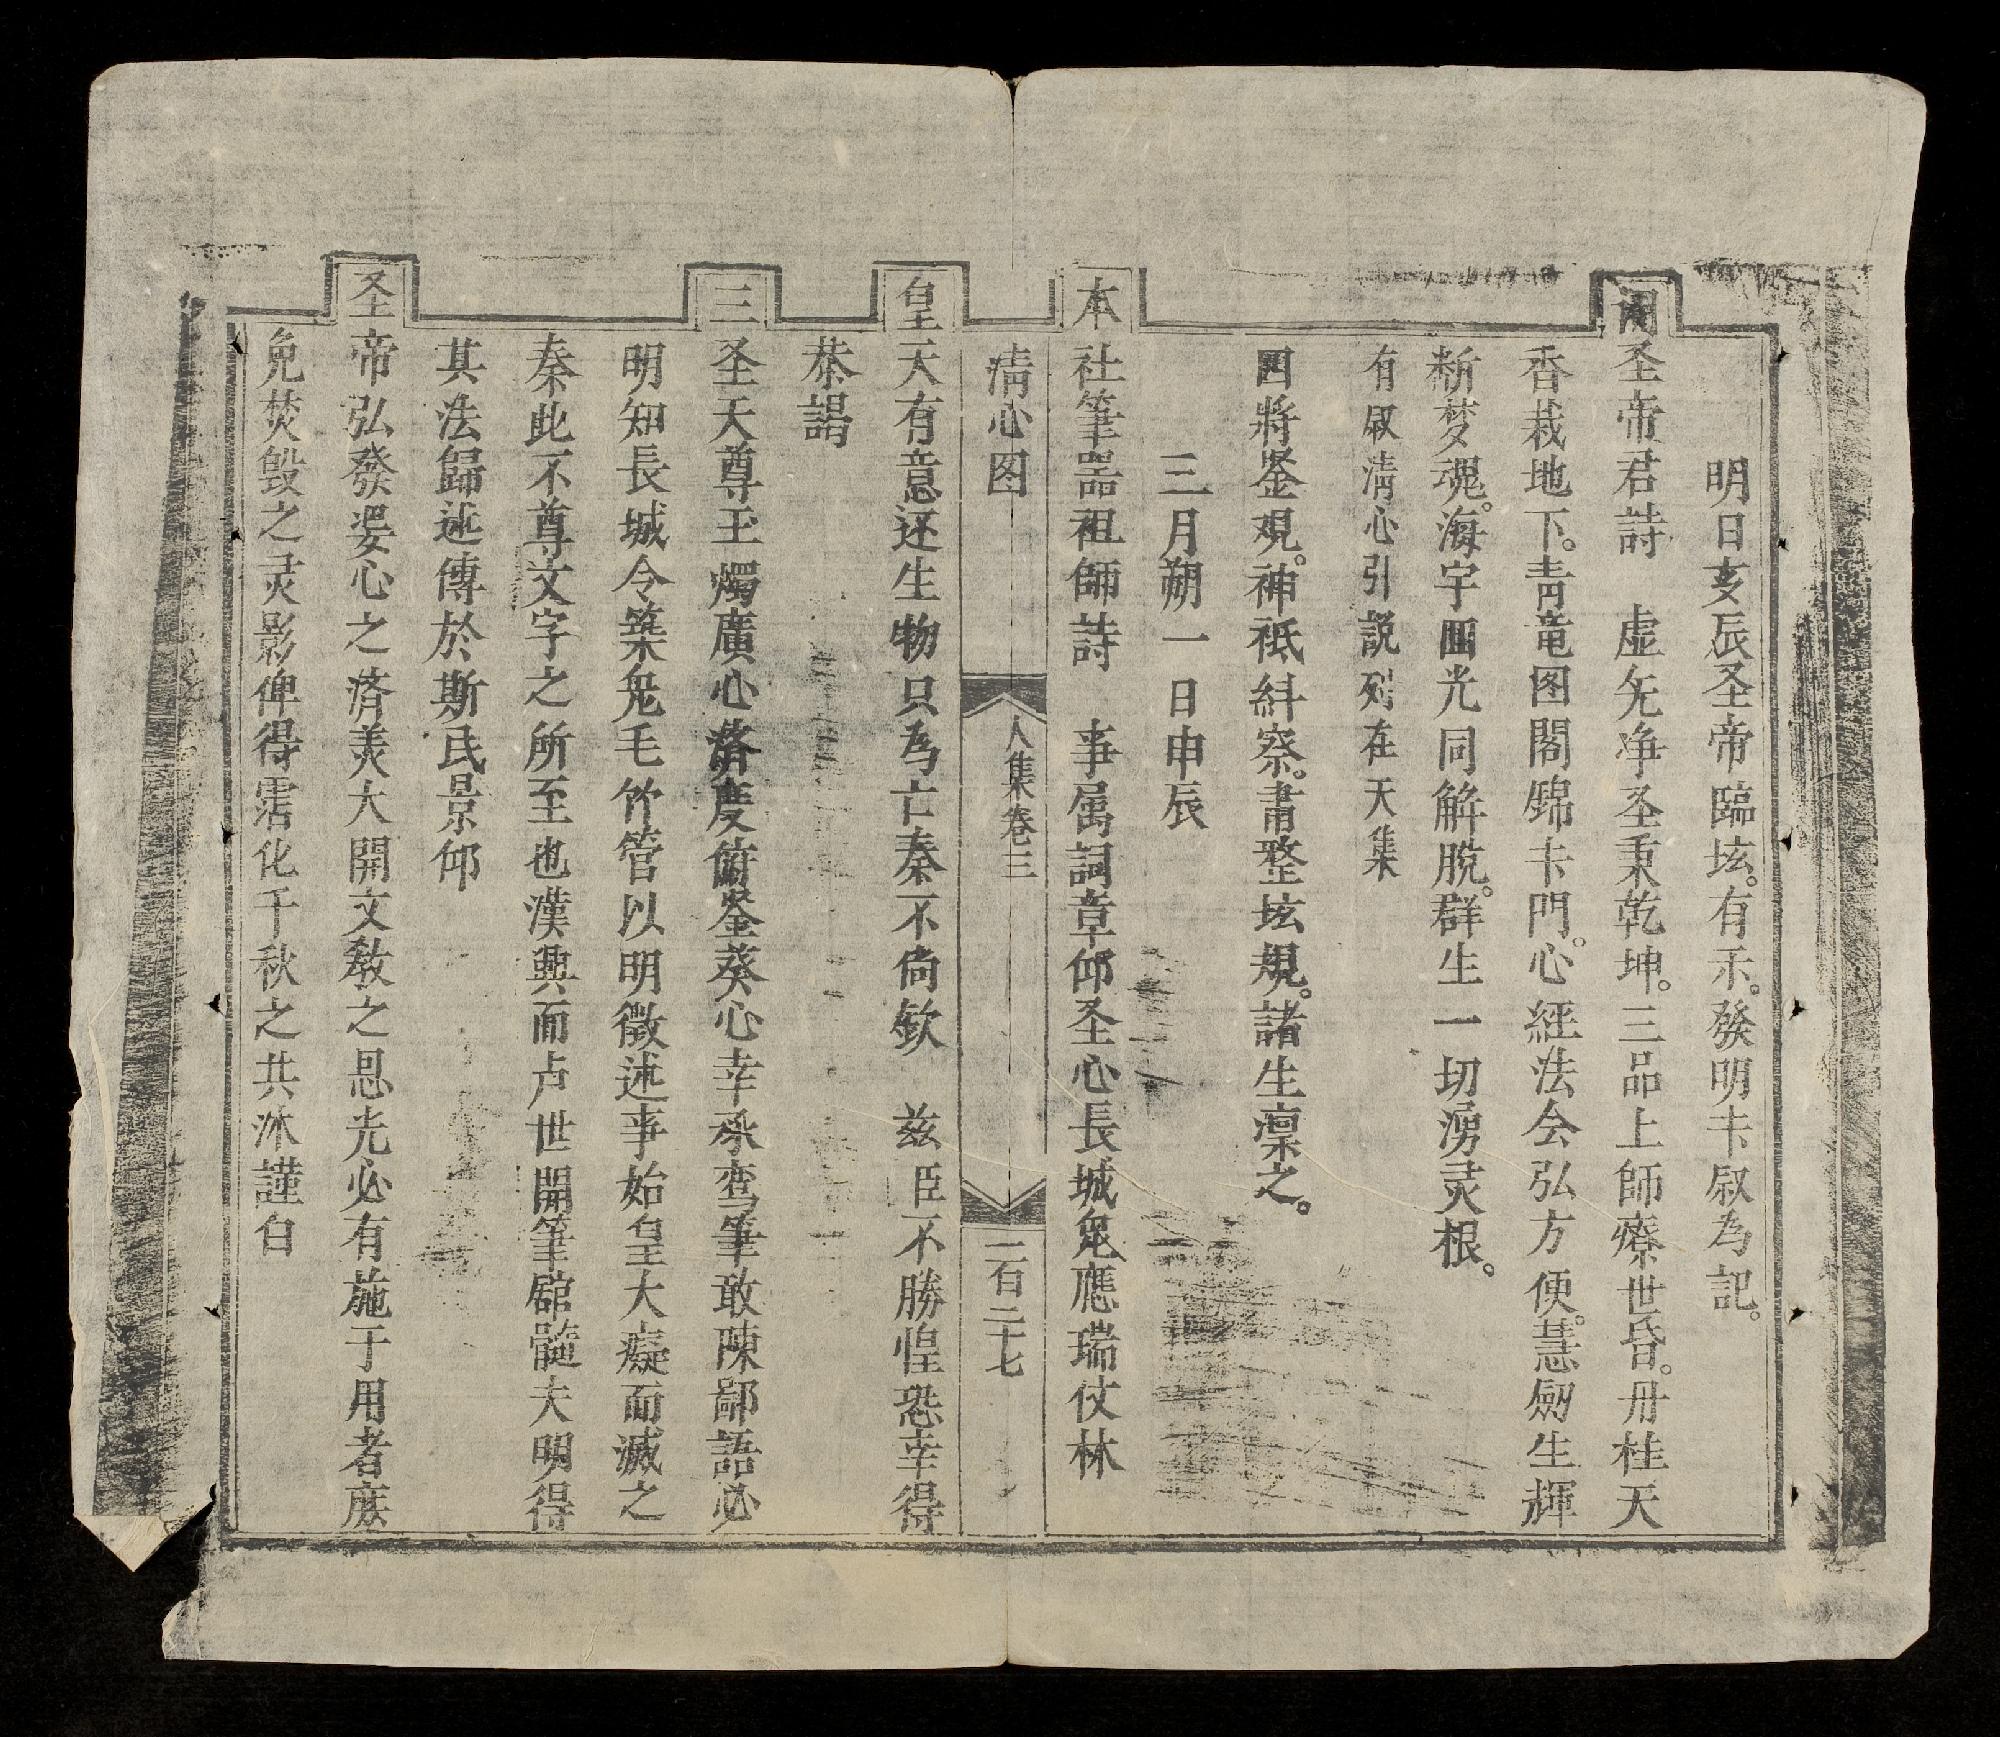 明日亥辰圣帝臨坛。有示。發明卡叙為記。
関圣帝君詩　虛无净圣秉乾坤。三品上師療世昏。丹桂天
香栽地下。青竜图閣錦卡門。心經法会弘方便。慧劒生輝
斬梦魂。海宇囬光同解脱。群生一切湧灵根。
有叙清心引説列在天集
四將鉴观。神祗糾察。肅整坛規。諸生凛之。
三月朔一日申辰
本社筆噐祖師詩　事属詞章仰圣心長城兔應瑞仗林
清心图　人集卷三　二百二十七
皇天有意还生物只為亡秦不倘欽　兹臣不勝惶恐幸得
恭謁
三圣天尊玉燭廣心濟度俯鉴葵心幸承鸾筆敢陳鄙語必
明知長城令築兔毛竹管以明徵述事始皇大癡而滅之
秦此不尊文字之所至也漢興而卢世開筆舘髓夫明得
其法歸述傳於斯民景仰
圣帝弘發婆心之濟美大開文教之恩光必有施于用者庶
免焚毀之灵影俾得霑化千秋之共沐謹白